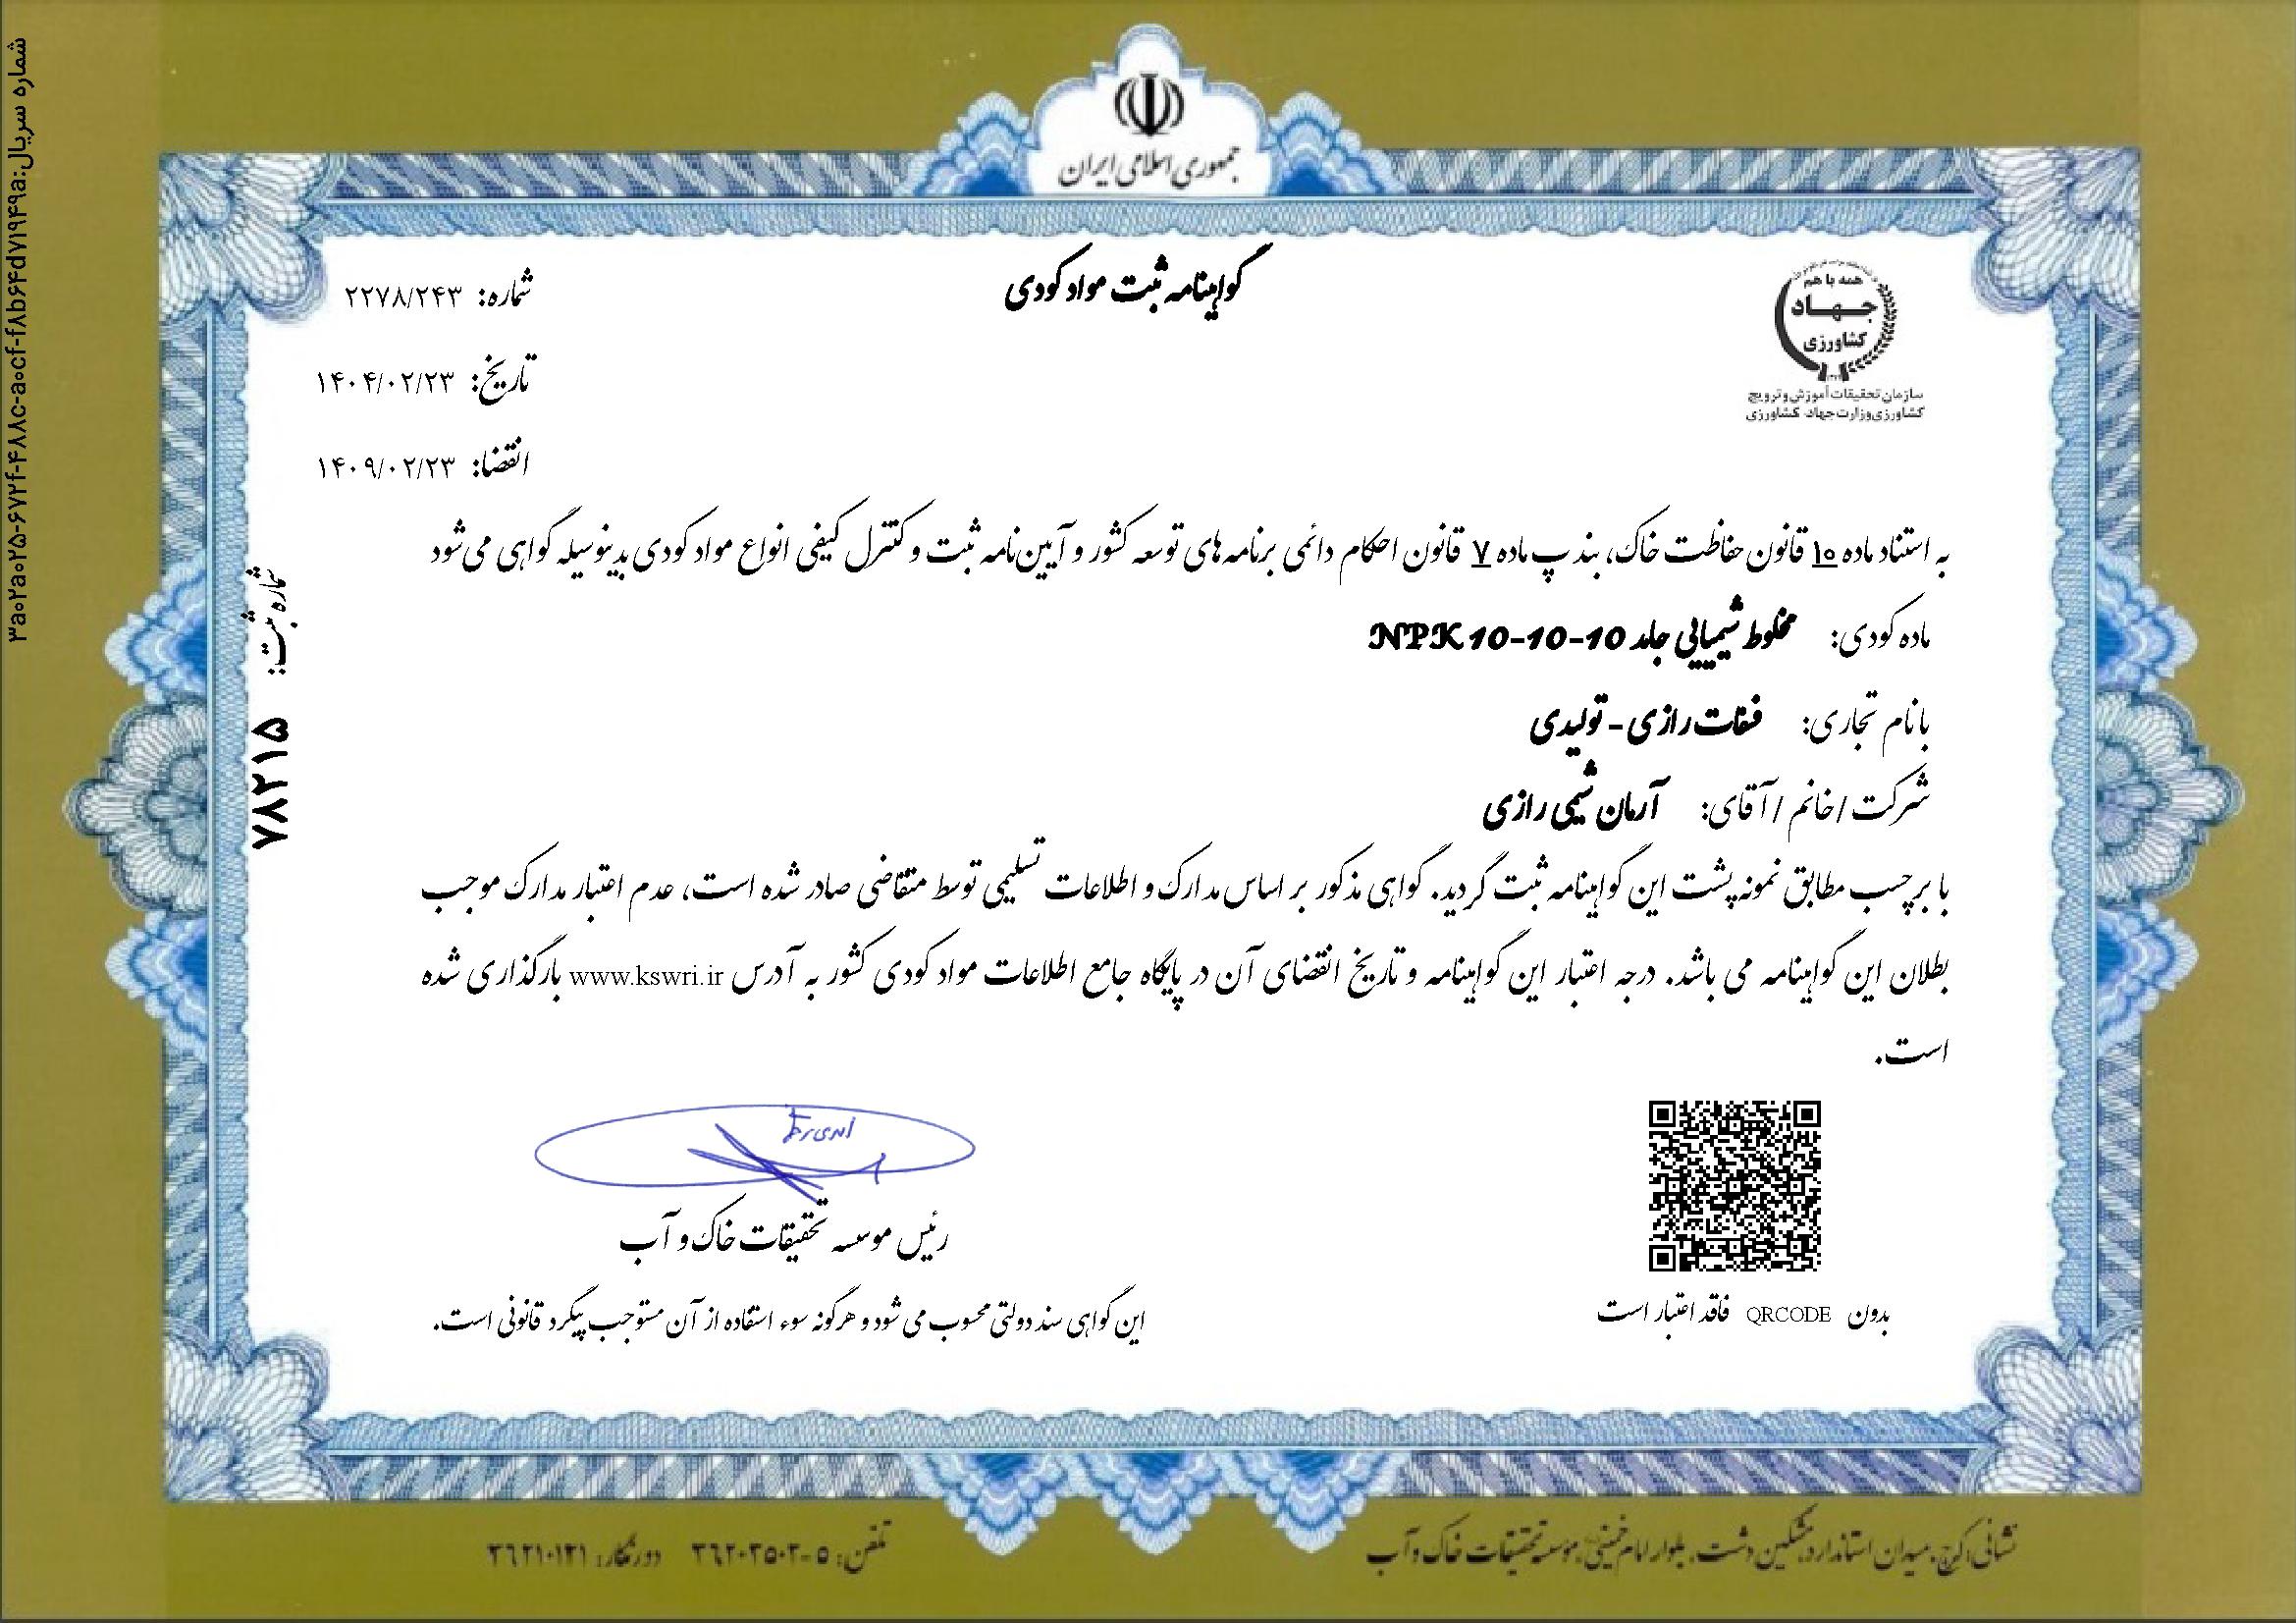 جمهوری اسلامی ایران
همه با هم
جهاد
کشاورزی
سازمان تحقیقات آموزش و ترویج
کشاورزی وزارت جهاد کشاورزی
گواهینامه ثبت مواد کودی
شماره: ۲۲۷۸/۲۴۳
تاریخ: ۱۴۰۴/۰۲/۲۳
انقضا: ۱۴۰۹/۰۲/۲۳
به استناد ماده ۱۰ قانون حفاظت خاک، بند پ ماده ۷ قانون احکام دائمی برنامه های توسعه کشور و آیین‌نامه ثبت و کنترل کیفی انواع مواد کودی بدینوسیله گواهی می شود
ماده کودی: مخلوط شیمیایی جامد NPK 10-10-10
با نام تجاری: فسفات رازی - تولیدی
شرکت / خانم / آقای: آرمان شیمی رازی
با برچسب مطابق نمونه پشت این گواهینامه ثبت گردید. گواهی مذکور بر اساس مدارک و اطلاعات تسلیمی توسط متقاضی صادر شده است، عدم اعتبار مدارک موجب
بطلان این گواهینامه می باشد. درجه اعتبار این گواهینامه و تاریخ انقضای آن در پایگاه جامع اطلاعات مواد کودی کشور به آدرس www.kswri.ir بارگذاری شده
است.
رئیس موسسه تحقیقات خاک و آب
بدون QRCODE فاقد اعتبار است
این گواهی سند دولتی محسوب می شود و هرگونه سوء استفاده از آن مستوجب پیگرد قانونی است.
نشانی: کرج، میدان استاندارد، مشکین دشت، بلوار امام خمینی، موسسه تحقیقات خاک و آب
تلفن: ۵-۳۶۲۰۲۵۰۲ دورنگار: ۳۶۲۱۰۱۲۱
شماره ثبت: ۷۸۲۱۵
شماره سریال:۳a۰۲a۰۲۵-۶۷۲f-۴۸۸c-a۰cf-f۸b۶۴d۷۱۹۴۹a